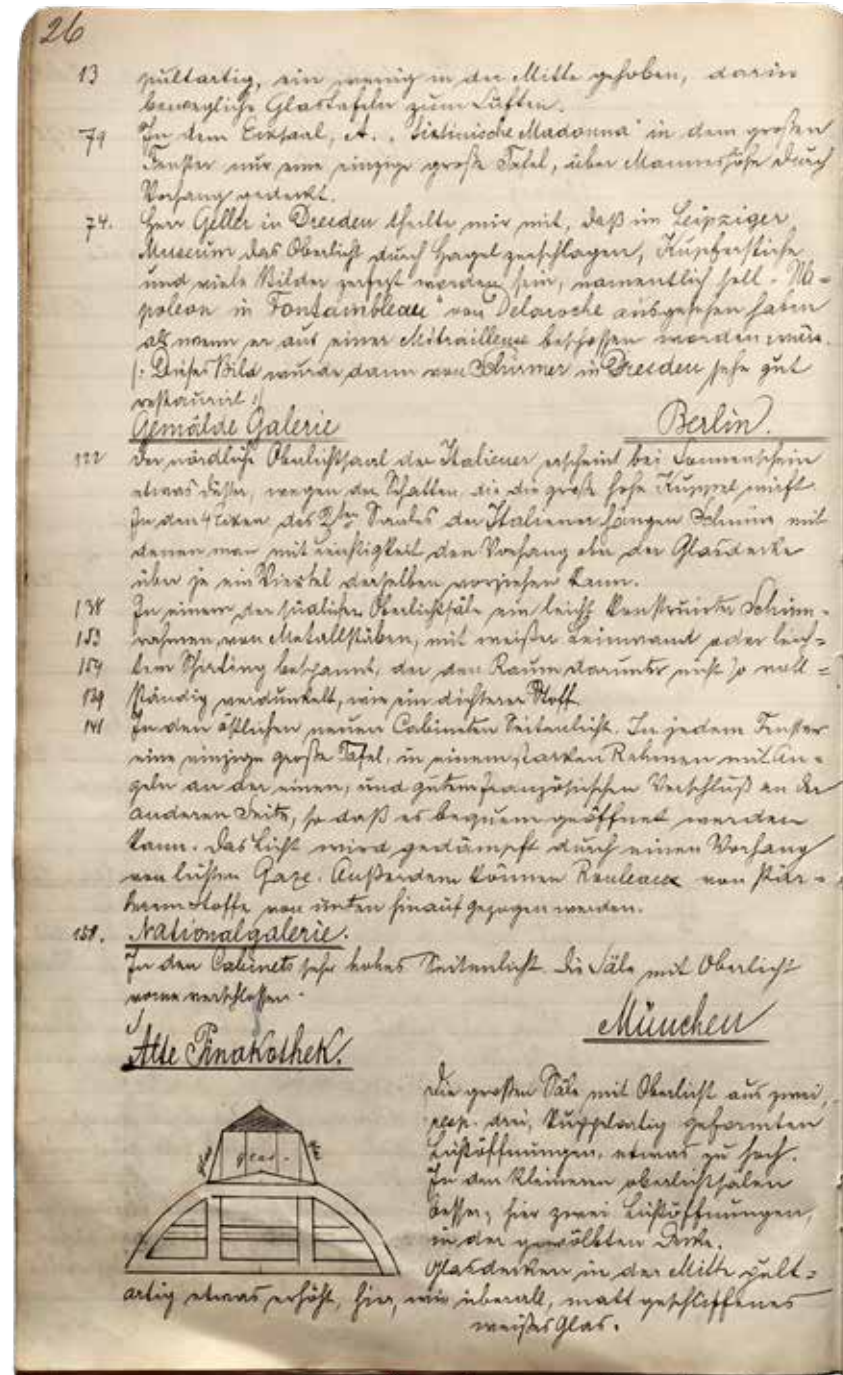 26
13 pultartig, ein wenig in der Mitte gehoben, darin
bewegliche Glastafeln zum Lüften.
79 In dem Ecksaal, A., "Sixtinische Madonna" in dem großen
Fenster nur eine einzige große Tafel, über Manneshöhe durch
Vorhang gedeckt.
74. Herr Geller in Dresden theilte mir mit, daß im Leipziger
Museum das Oberlicht durch Hagel zerschlagen, Kupferstiche
und viele Bilder zerfetzt worden sein, namentlich soll "Na=
poleon in Fontainbleau" von Delaroche ausgesehen haben
als wenn er aus einer Mitrailleuse beschossen worden wäre.
(: Dieses Bild wurde dann von Schirmer in Dresden sehr gut
restaurirt :)
Gemälde Galerie Berlin.
122 Der nördliche Oberlichtsaal der Italiener erscheint bei Sonnenschein
etwas düster, wegen der Schatten, die die große hohe Kuppel wirft.
In den 4 Ecken des 2ten Saales der Italiener hängen Schnüre mit
denen man mit Leichtigkeit den Vorhang ob der Glasdecke
über je ein Viertel derselben vorziehen kann.
138 In einem der südlichen Oberlichtsäle ein leicht konstruirter Schirm=
153 rahmen, von Metallstäben, mit weißer Leinwand oder leich=
154 tem Shirting bespannt, der den Raum darunter nicht so voll=
139 ständig verdunkelt, wie ein dichterer Stoff.
141 In den östlichen neuen Cabineten Seitenlicht. In jedem Fenster
eine einzige große Tafel, in einem starken Rahmen mit An=
geln an der einen, und gutem französischen Verschluß an der
anderen Seite, so daß es bequem geöffnet werden
kann. Das Licht wird gedämpft durch einen Vorhang
von lichten Gaze. Außerdem können Rouleaux von stär=
kerem Stoffe von unten hinauf gezogen werden.
158. Nationalgalerie.
In den Cabinets sehr hohes Seitenlicht. Die Säle mit Oberlicht
vorne verschlossen.
München
Alte Pinakothek.
Die großen Säle mit Oberlicht aus zwei,
resp. drei, kuppelartig geformten
Lichtöffnungen, etwas zu hoch.
In den kleineren Oberlichtsälen
besser, hier zwei Lichtöffnungen,
in der gewölbten Decke.
Glasdecken in der Mitte pult=
artig etwas erhöht, hier, wie überall, matt geschliffenes
weißes Glas.